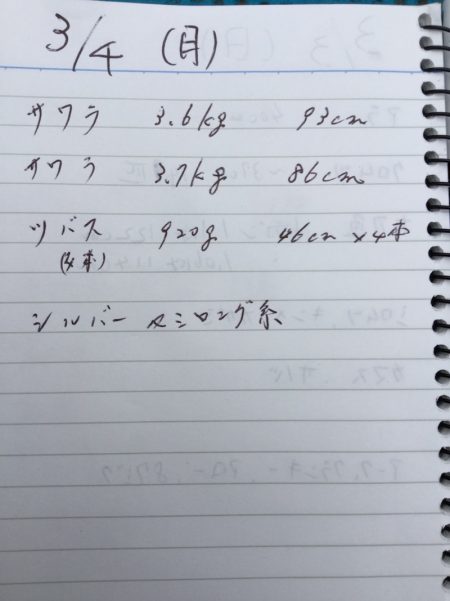 3/4 (月)
サワラ 3.6kg 93cm
サワラ 3.7kg 86cm
ツバス 920g 46cm×4本
(4本)
シルバー ロング系